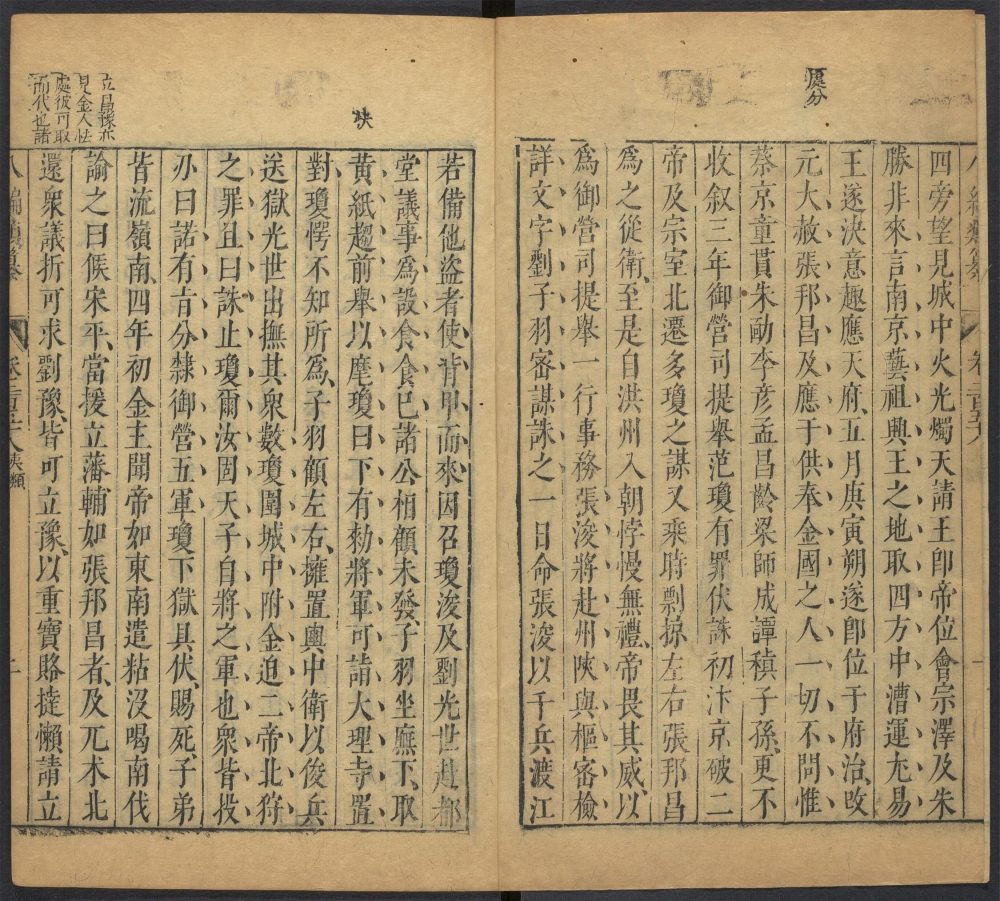 處分
四旁望見城中火光燭天請王卽帝位會宗澤及朱
勝非來言南京藝祖興王之地取四方中漕運尤易
王遂決意趣應天府五月庚寅朔遂卽位于府治攺
元大赦張邦昌及應于供奉金國之人一切不問惟
蔡京童貫朱勔李彥孟昌齡梁師成譚稹子孫更不
收叙三年御營司提舉范瓊有罪伏誅初汴京破二
帝及宗室北遷多瓊之謀又乘時剽掠左右張邦昌
爲之從衛至是自洪州入朝悖慢無禮帝畏其威以
爲御營司提舉一行事務張浚將赴州陝與樞密檢
詳文字劉子羽密謀誅之一日命張浚以千兵渡江
快
立昌豫亦
見金人怯
處彼可取
而代也諸
若備他盜者使皆甲而來因召瓊浚及劉光世赴都
堂議事爲設食食已諸公相顧未發子羽坐廡下取
黃紙趨前舉以麾瓊曰下有勑將軍可詣大理寺置
對瓊愕不知所爲子羽顧左右擁置輿中衛以俊兵
送獄光世出撫其衆數瓊圍城中附金迫二帝北狩
之罪且曰誅止瓊爾汝固天子自將之軍也衆皆投
刅曰諾有旨分隸御營五軍瓊下獄具伏賜死子弟
皆流嶺南四年初金主聞帝如東南遣粘沒喝南伐
諭之曰俟宋平當援立藩輔如張邦昌者及兀术北
還衆議折可求劉豫皆可立豫以重寶賂撻懶請立